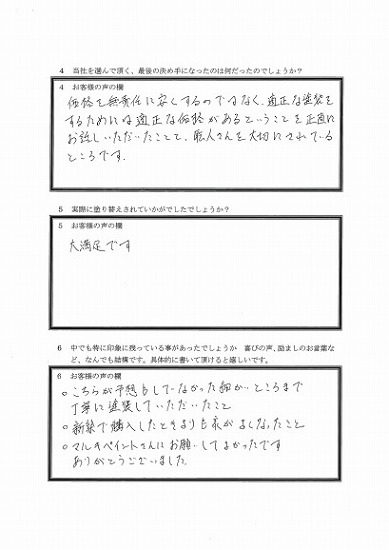 4 当社を選んで頂く、最後の決め手になったのは何だったのでしょうか?
4 お客様の声の欄
価格を無責任に安くするのではなく、適正な塗装を
するためには適正な価格があるということを正直に
お話しいただいたことと、職人さんを大切にされている
ところです.
5 実際に塗り替えされていかがでしたでしょうか?
5 お客様の声の欄
大満足です
6 中でも特に印象に残っている事があったでしょうか 喜びの声、励ましのお言葉な
ど、なんでも結構です。具体的に書いて頂けると嬉しいです。
6 お客様の声の欄
○こちらが予想もしていなかった細かいところまで
丁寧に塗装していただいたこと
○新築で購入したときよりも家がよくなったこと
○マルキペイントさんにお願いしてよかったです
ありがとうございました.